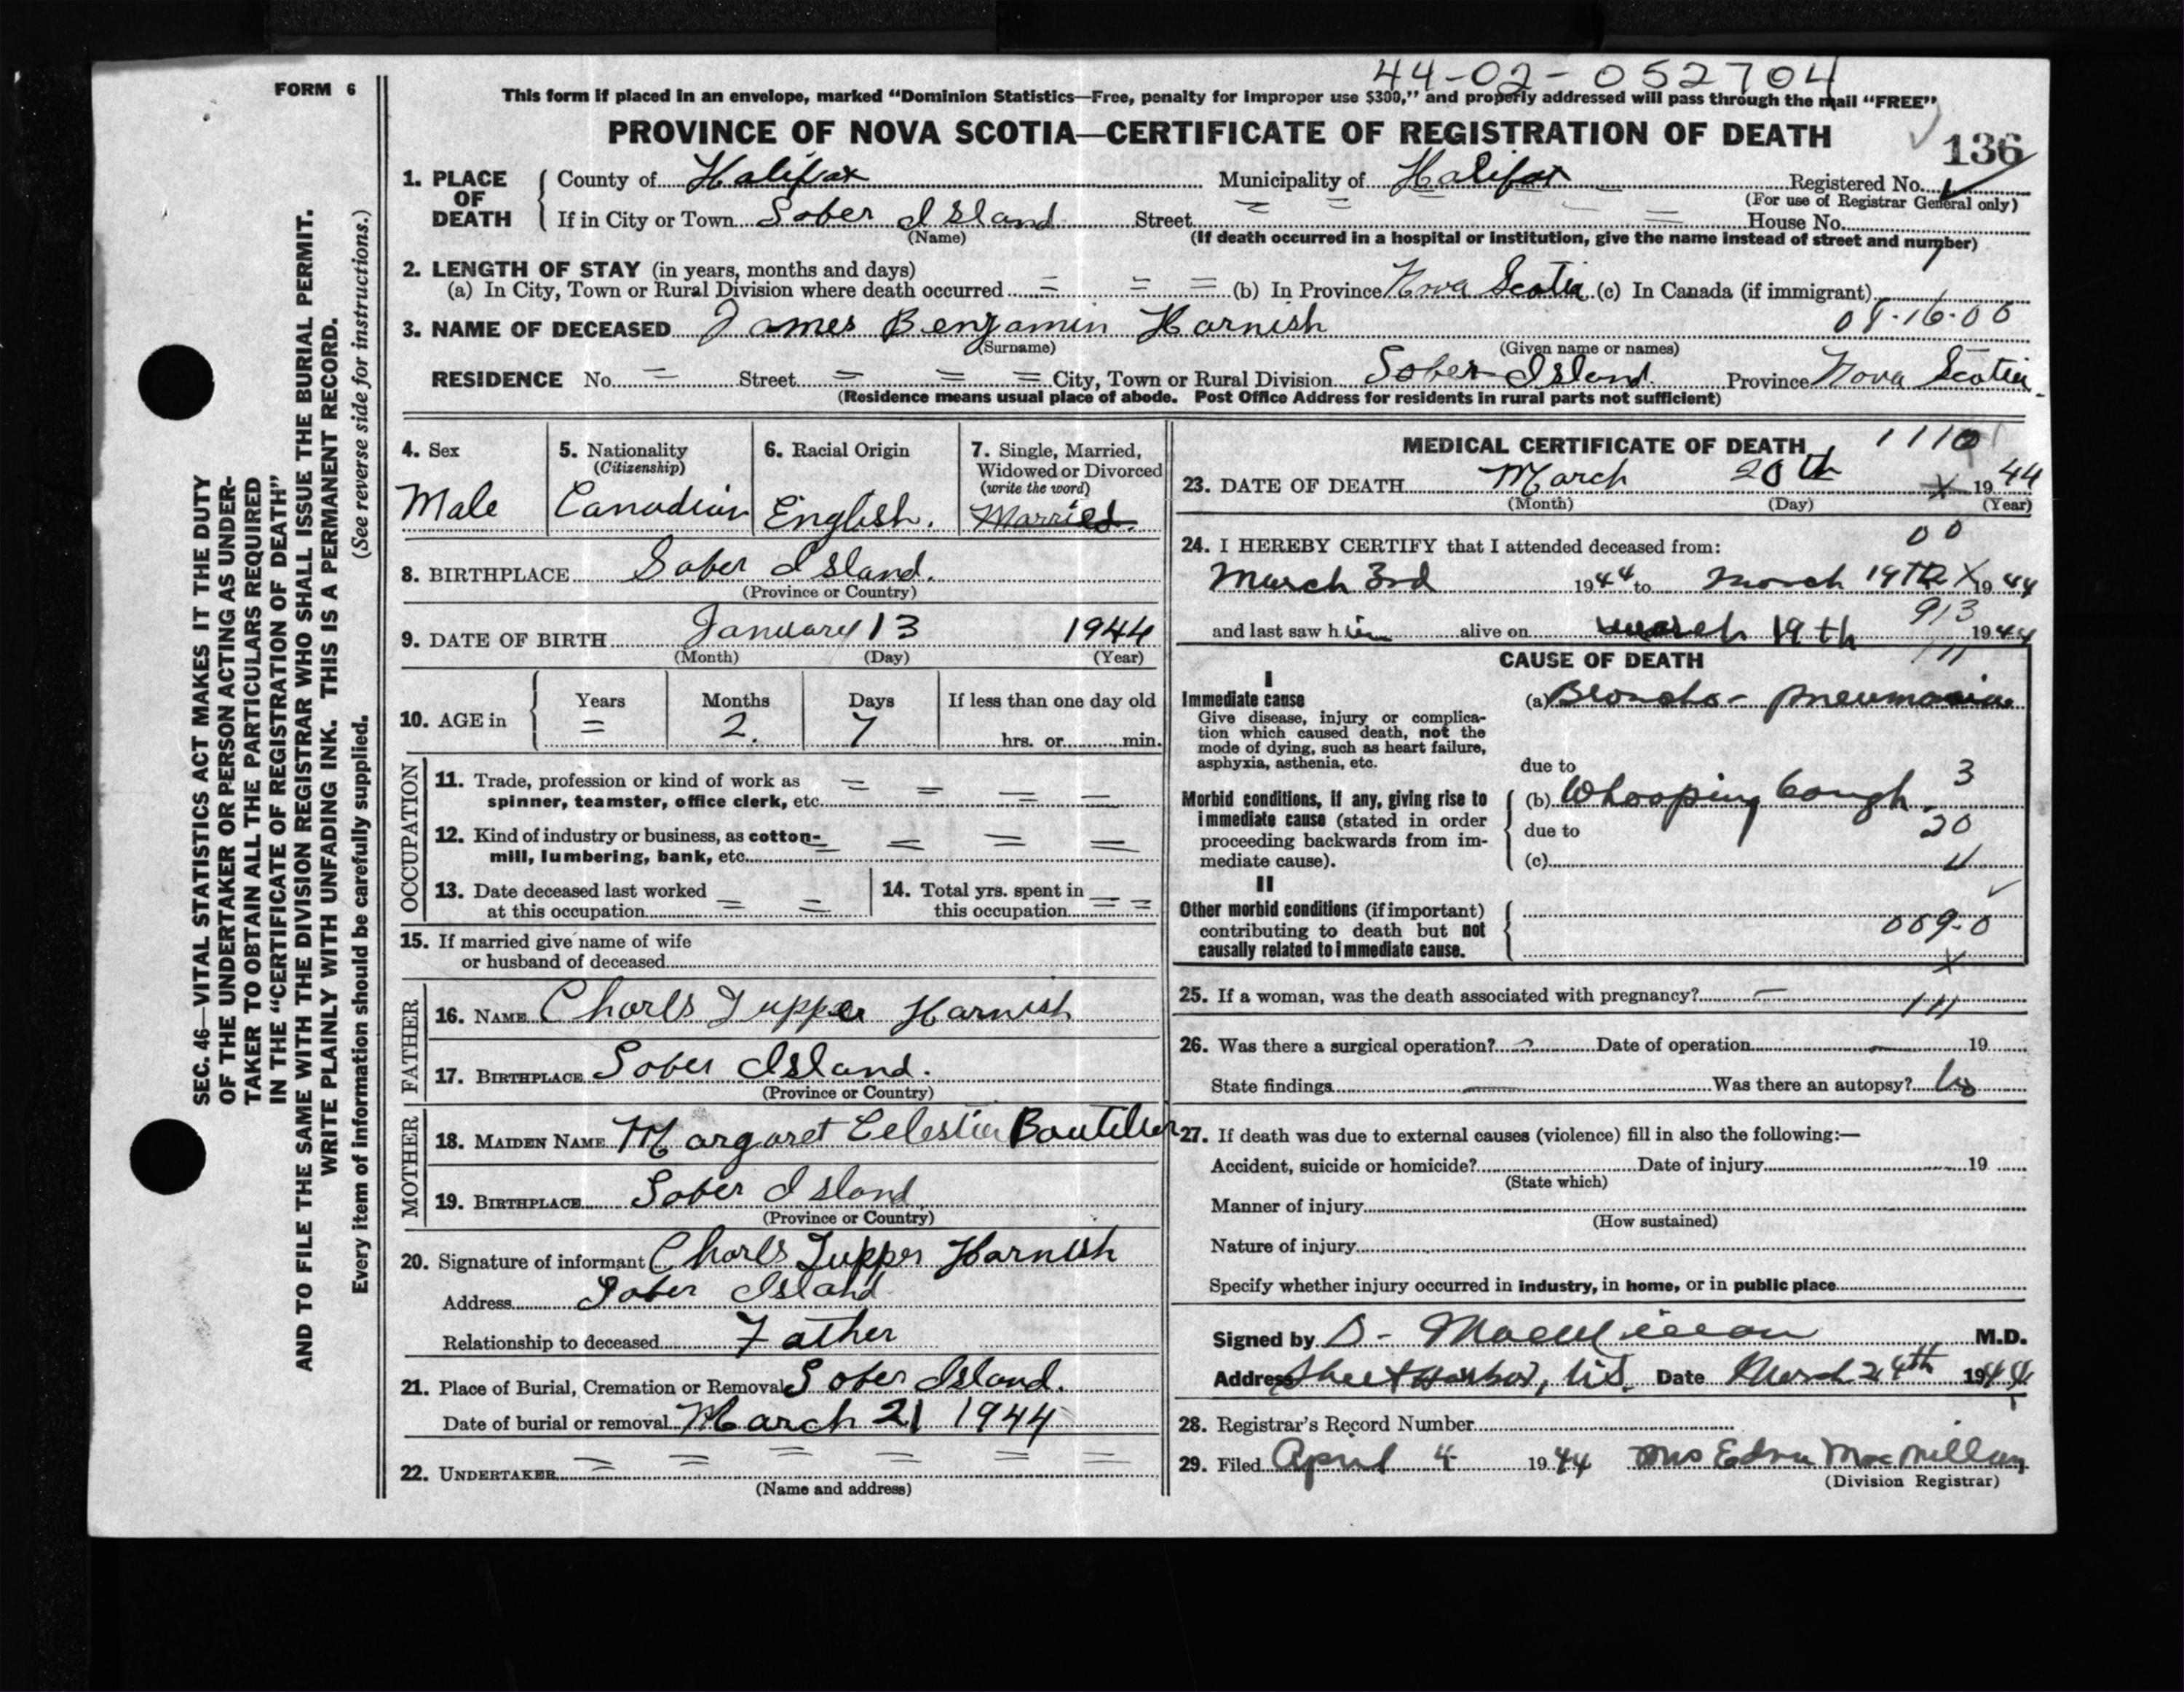 44-02-052704
FORM 6
This form if placed in an envelope, marked "Dominion Statistics—Free, penalty for improper use $300," and properly addressed will pass through the mail "FREE"
PROVINCE OF NOVA SCOTIA—CERTIFICATE OF REGISTRATION OF DEATH
136
1. PLACE OF DEATH
County of Halifax Municipality of Halifax Registered No.
(For use of Registrar General only)
If in City or Town Sober Island Street = = = House No.
(Name) (If death occurred in a hospital or institution, give the name instead of street and number)
2. LENGTH OF STAY (in years, months and days)
(a) In City, Town or Rural Division where death occurred = = = (b) In Province Nova Scotia (c) In Canada (if immigrant)
3. NAME OF DECEASED James Benjamin Harnish
(Surname) (Given name or names)
RESIDENCE No. = Street = = = City, Town or Rural Division Sober Island. Province Nova Scotia.
(Residence means usual place of abode. Post Office Address for residents in rural parts not sufficient)
SEC. 46—VITAL STATISTICS ACT MAKES IT THE DUTY
OF THE UNDERTAKER OR PERSON ACTING AS UNDER-
TAKER TO OBTAIN ALL THE PARTICULARS REQUIRED
IN THE "CERTIFICATE OF REGISTRATION OF DEATH"
AND TO FILE THE SAME WITH THE DIVISION REGISTRAR WHO SHALL ISSUE THE BURIAL PERMIT.
WRITE PLAINLY WITH UNFADING INK. THIS IS A PERMANENT RECORD.
Every item of information should be carefully supplied. (See reverse side for instructions.)
4. Sex
Male
5. Nationality
(Citizenship)
Canadian
6. Racial Origin
English.
7. Single, Married,
Widowed or Divorced
(write the word)
Married.
8. BIRTHPLACE Sober Island.
(Province or Country)
9. DATE OF BIRTH January 13 1944
(Month) (Day) (Year)
10. AGE in
Years Months Days If less than one day old
= 2. 7 hrs. or min.
OCCUPATION
11. Trade, profession or kind of work as
spinner, teamster, office clerk, etc. = = = =
12. Kind of industry or business, as cotton-
mill, lumbering, bank, etc. = = = =
13. Date deceased last worked
at this occupation = =
14. Total yrs. spent in
this occupation = =
15. If married give name of wife
or husband of deceased
FATHER
16. NAME Charls Tupper Harnish
17. BIRTHPLACE Sober Island.
(Province or Country)
MOTHER
18. MAIDEN NAME Margaret Celestia Boutilier
19. BIRTHPLACE Sober Island
(Province or Country)
20. Signature of informant Charls Tupper Harnish
Address Sober Island
Relationship to deceased Father
21. Place of Burial, Cremation or Removal Sober Island.
Date of burial or removal March 21 1944
22. UNDERTAKER = = = = =
(Name and address)
MEDICAL CERTIFICATE OF DEATH 1110
23. DATE OF DEATH March 20th X 1944
(Month) (Day) (Year)
00
24. I HEREBY CERTIFY that I attended deceased from:
March 3rd 1944 to March 19th X 1944
913
and last saw him alive on March 19th 1944
CAUSE OF DEATH
I
Immediate cause
Give disease, injury or complica-
tion which caused death, not the
mode of dying, such as heart failure,
asphyxia, asthenia, etc.
(a) Broncho-pneumonia
due to
Morbid conditions, if any, giving rise to
immediate cause (stated in order
proceeding backwards from im-
mediate cause).
(b) Whooping Cough. 3
due to 20
(c)
II
Other morbid conditions (if important)
contributing to death but not
causally related to immediate cause.
009-0
X
25. If a woman, was the death associated with pregnancy? —
111
26. Was there a surgical operation? Date of operation — 19
State findings — Was there an autopsy?
27. If death was due to external causes (violence) fill in also the following:—
Accident, suicide or homicide? Date of injury 19
(State which)
Manner of injury
(How sustained)
Nature of injury
Specify whether injury occurred in industry, in home, or in public place
Signed by D. MacMillan M.D.
Address Sheet Harbor, N.S. Date March 24th 1944
28. Registrar's Record Number
29. Filed April 4 1944 Mrs Edna MacMillan
(Division Registrar)